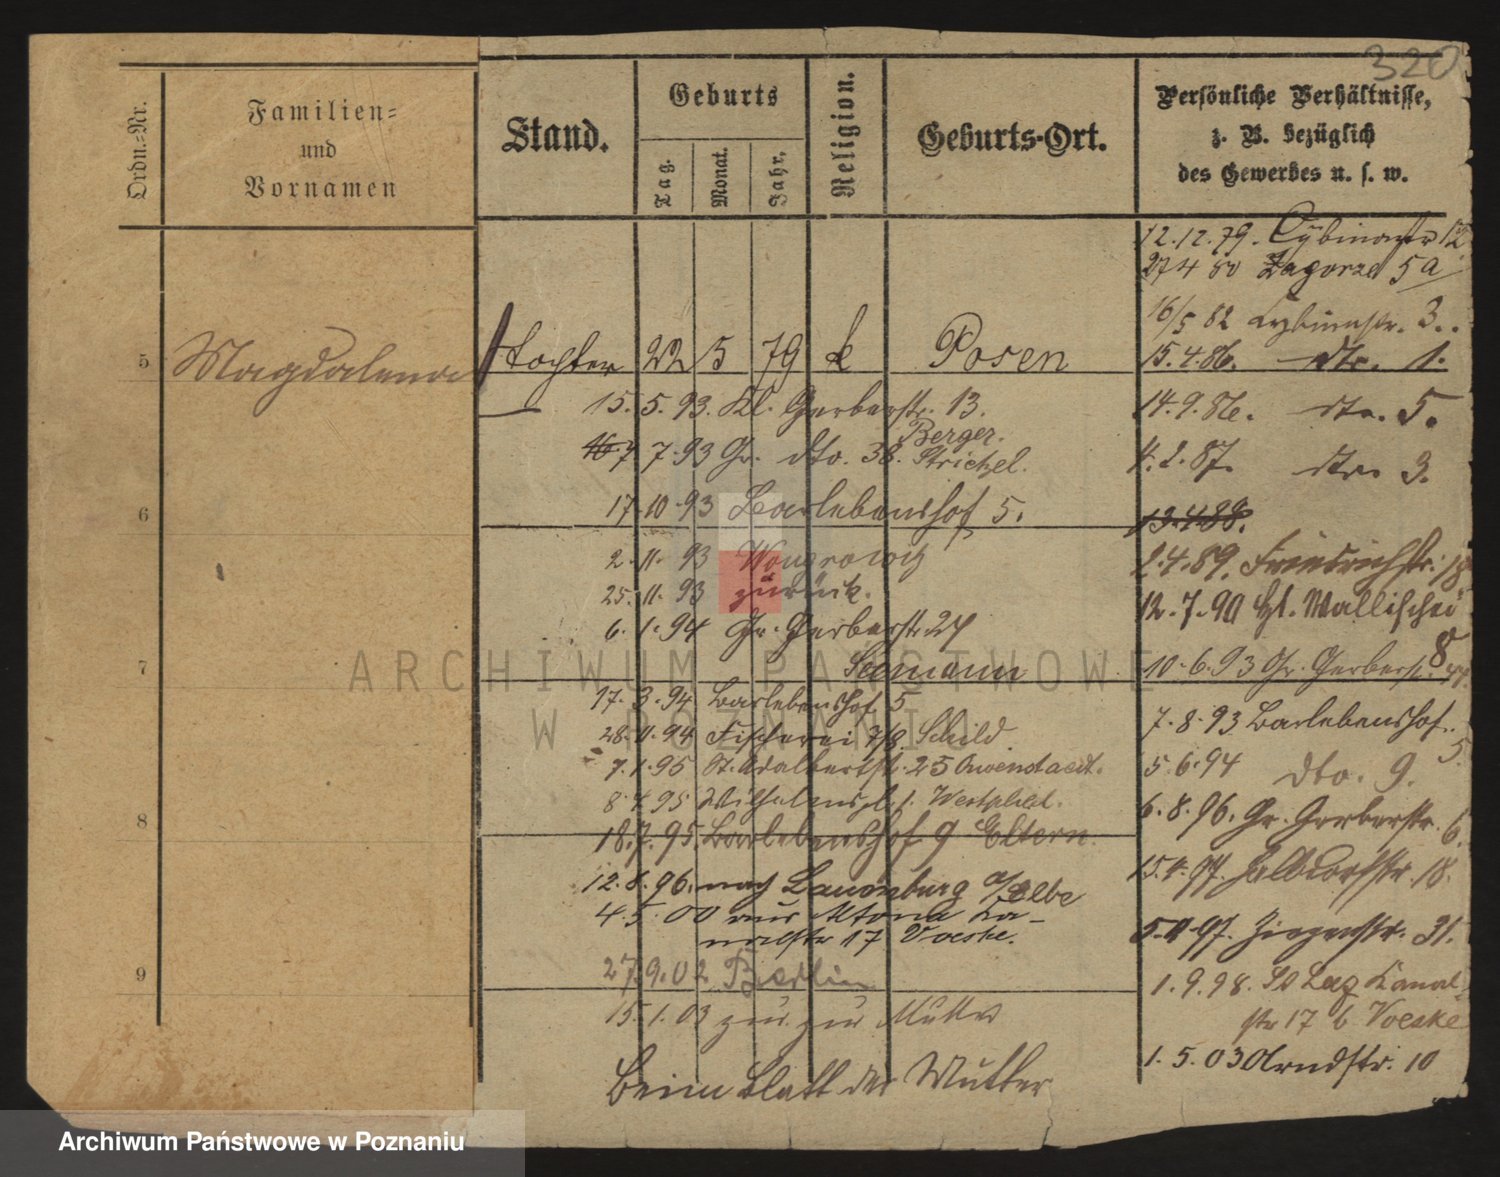 320
Ordn.-Nr.
Familien-
und
Vornamen
Stand.
Geburts
Tag.
Monat.
Jahr.
Religion.
Geburts-Ort.
Persönliche Verhältnisse,
z. B. bezüglich
des Gewerbes u. s. w.
12.12.79. Cybinastr 12
27 4 80 Zagorze 5a
16/5 82 Cybinastr. 3.
5 Magdalena Tochter 22 5 79 k Posen
15.4.86. dto. 1.
15.5.93. Kl. Gerberstr. 13.
14.9.86. dto. 5.
7 7.93 Gr. dto. 38. Berger.
Strichel.
4.2.87. dto. 3.
6
17.10.93 Barlebenshof 5.
13.4.88.
2.11.93 Wongrowitz
2.4.89. Friedrichstr. 18
25.11.93 zurück.
12.7.90 Wallischei
8
6.1.94 Gr. Gerberstr. 27
Seemann
10.6.93 Gr. Gerberstr.
7
17.3.94 Barlebenshof 5
7.8.93 Barlebenshof
5.
28.11.94 Fischerei 7/8. Schild
7.1.95 St. Adalbertstr. 25
5.6.94 dto. 9.
8.4.95 Wilhelmspl. 1. Westphal.
8
6.8.96. Gr. Gerberstr. 6.
18.7.95. Barlebenshof 9 Eltern.
12.8.96. nach Lauenburg a/Elbe
15.4.97. Halbdorfstr. 18.
4.5.00 aus Altona Ka-
nalstr 17 Voeske.
5.11.97. Ziegenstr. 31.
9
27.9.02 Berlin
1.9.98. St Laz Kanal-
str 17 b Voeske
15.1.03 zur. zur Mutter
1.5.03 Arndtstr. 10
Beim Blatt der Mutter
ARCHIWUM PAŃSTWOWE
W POZNANIU
Archiwum Państwowe w Poznaniu